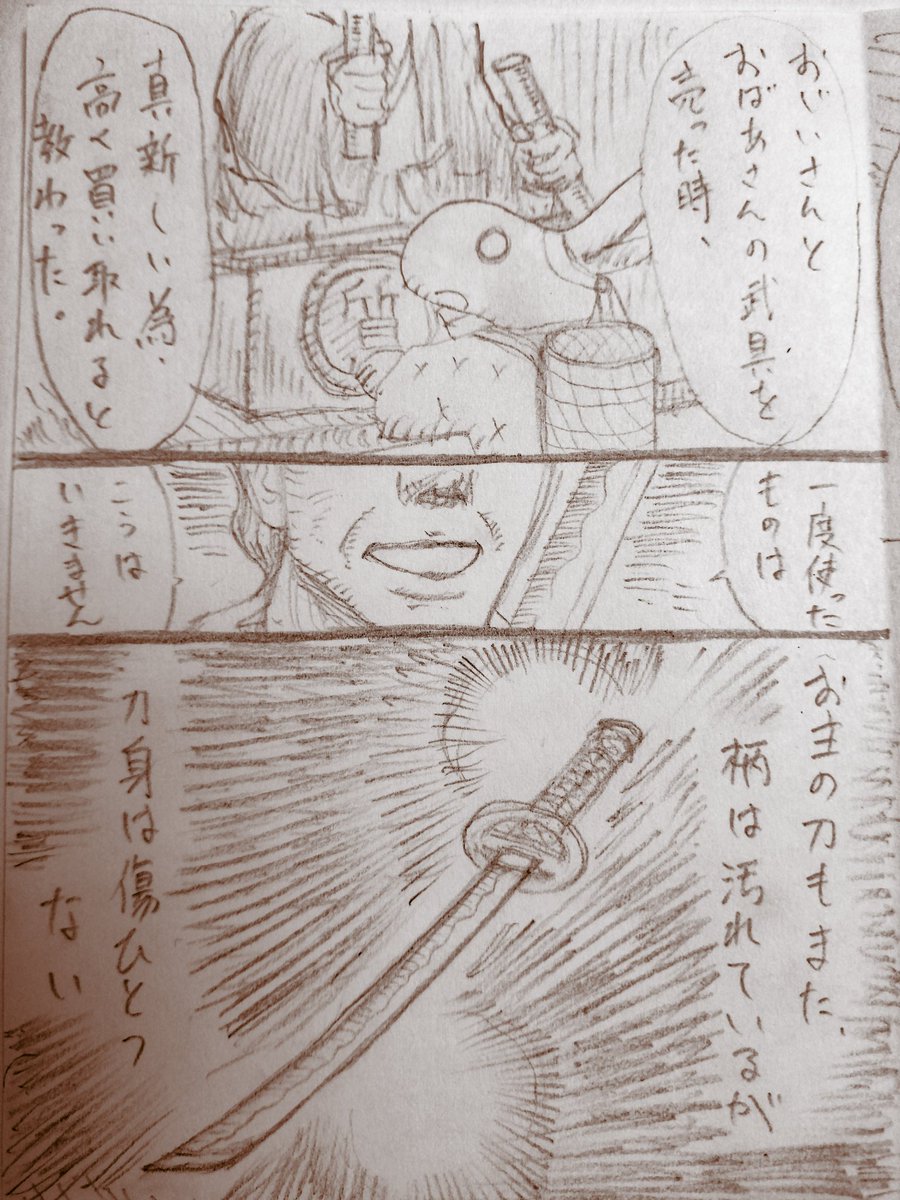 おじいさんと
おばあさんの武具を
売った時、
真新しい為、
高く買い取れると
教わった。
質
一度使った
ものは
こうは
いきません
お主の刀もまた、
柄は汚れているが
刀身は傷ひとつ
ない